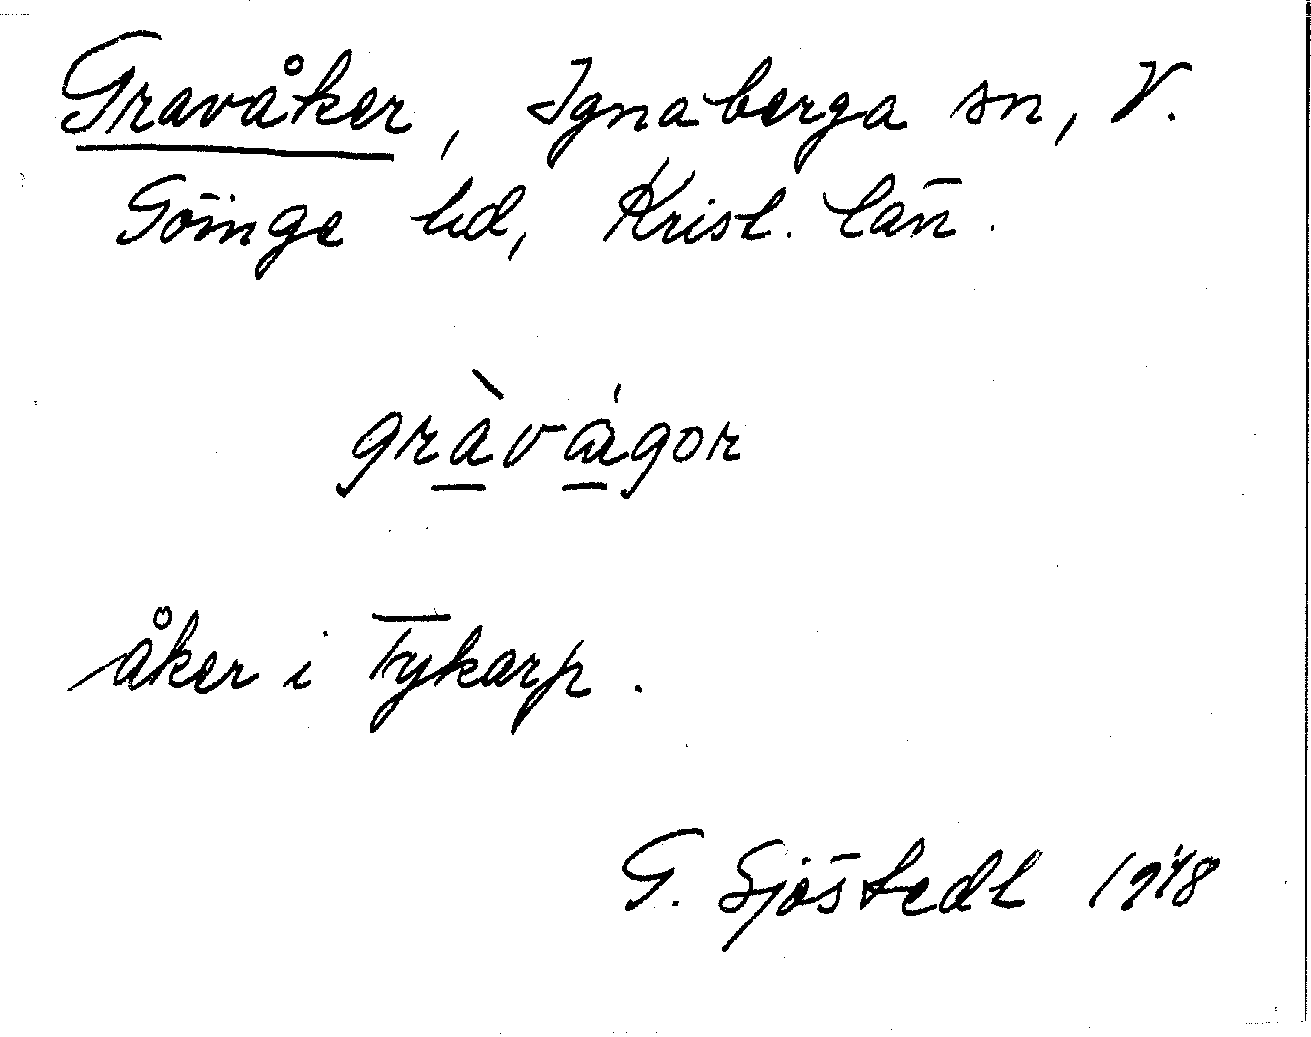 Gravåker, Ignaberga sn, V.
Göinge hd, Krist. län.
gràvágor
åker i Tykarp.
G. Sjöstedt 1948